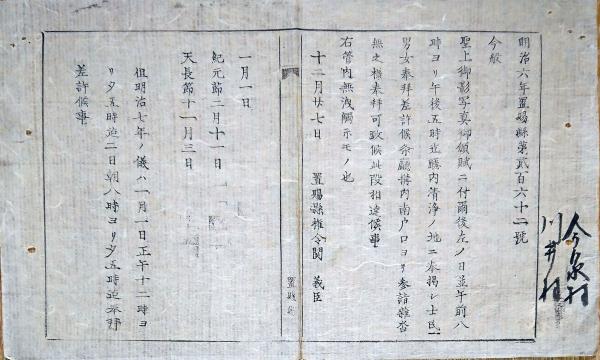 明治六年置賜縣第貳百六十二號
今般
聖上御影写真御頒賦ニ付爾後左ノ日並午前八
時ヨリ午後五時迄廳内清浄ノ地ニ奉掲シ士民
男女奉拝差許候条廳構内南戸口ヨリ参詣雑沓
無之様奉拝可致候此段相達候事
右管内無洩觸示モノ也
十二月廿七日 置賜縣権令関 義臣
一月一日
紀元節二月十一日
天長節十一月三日
但明治七年ノ儀ハ一月一日正午十二時ヨ
リ夕五時迄二日朝八時ヨリ夕五時迄奉拝
差許候事
置賜縣
今泉村
川井村